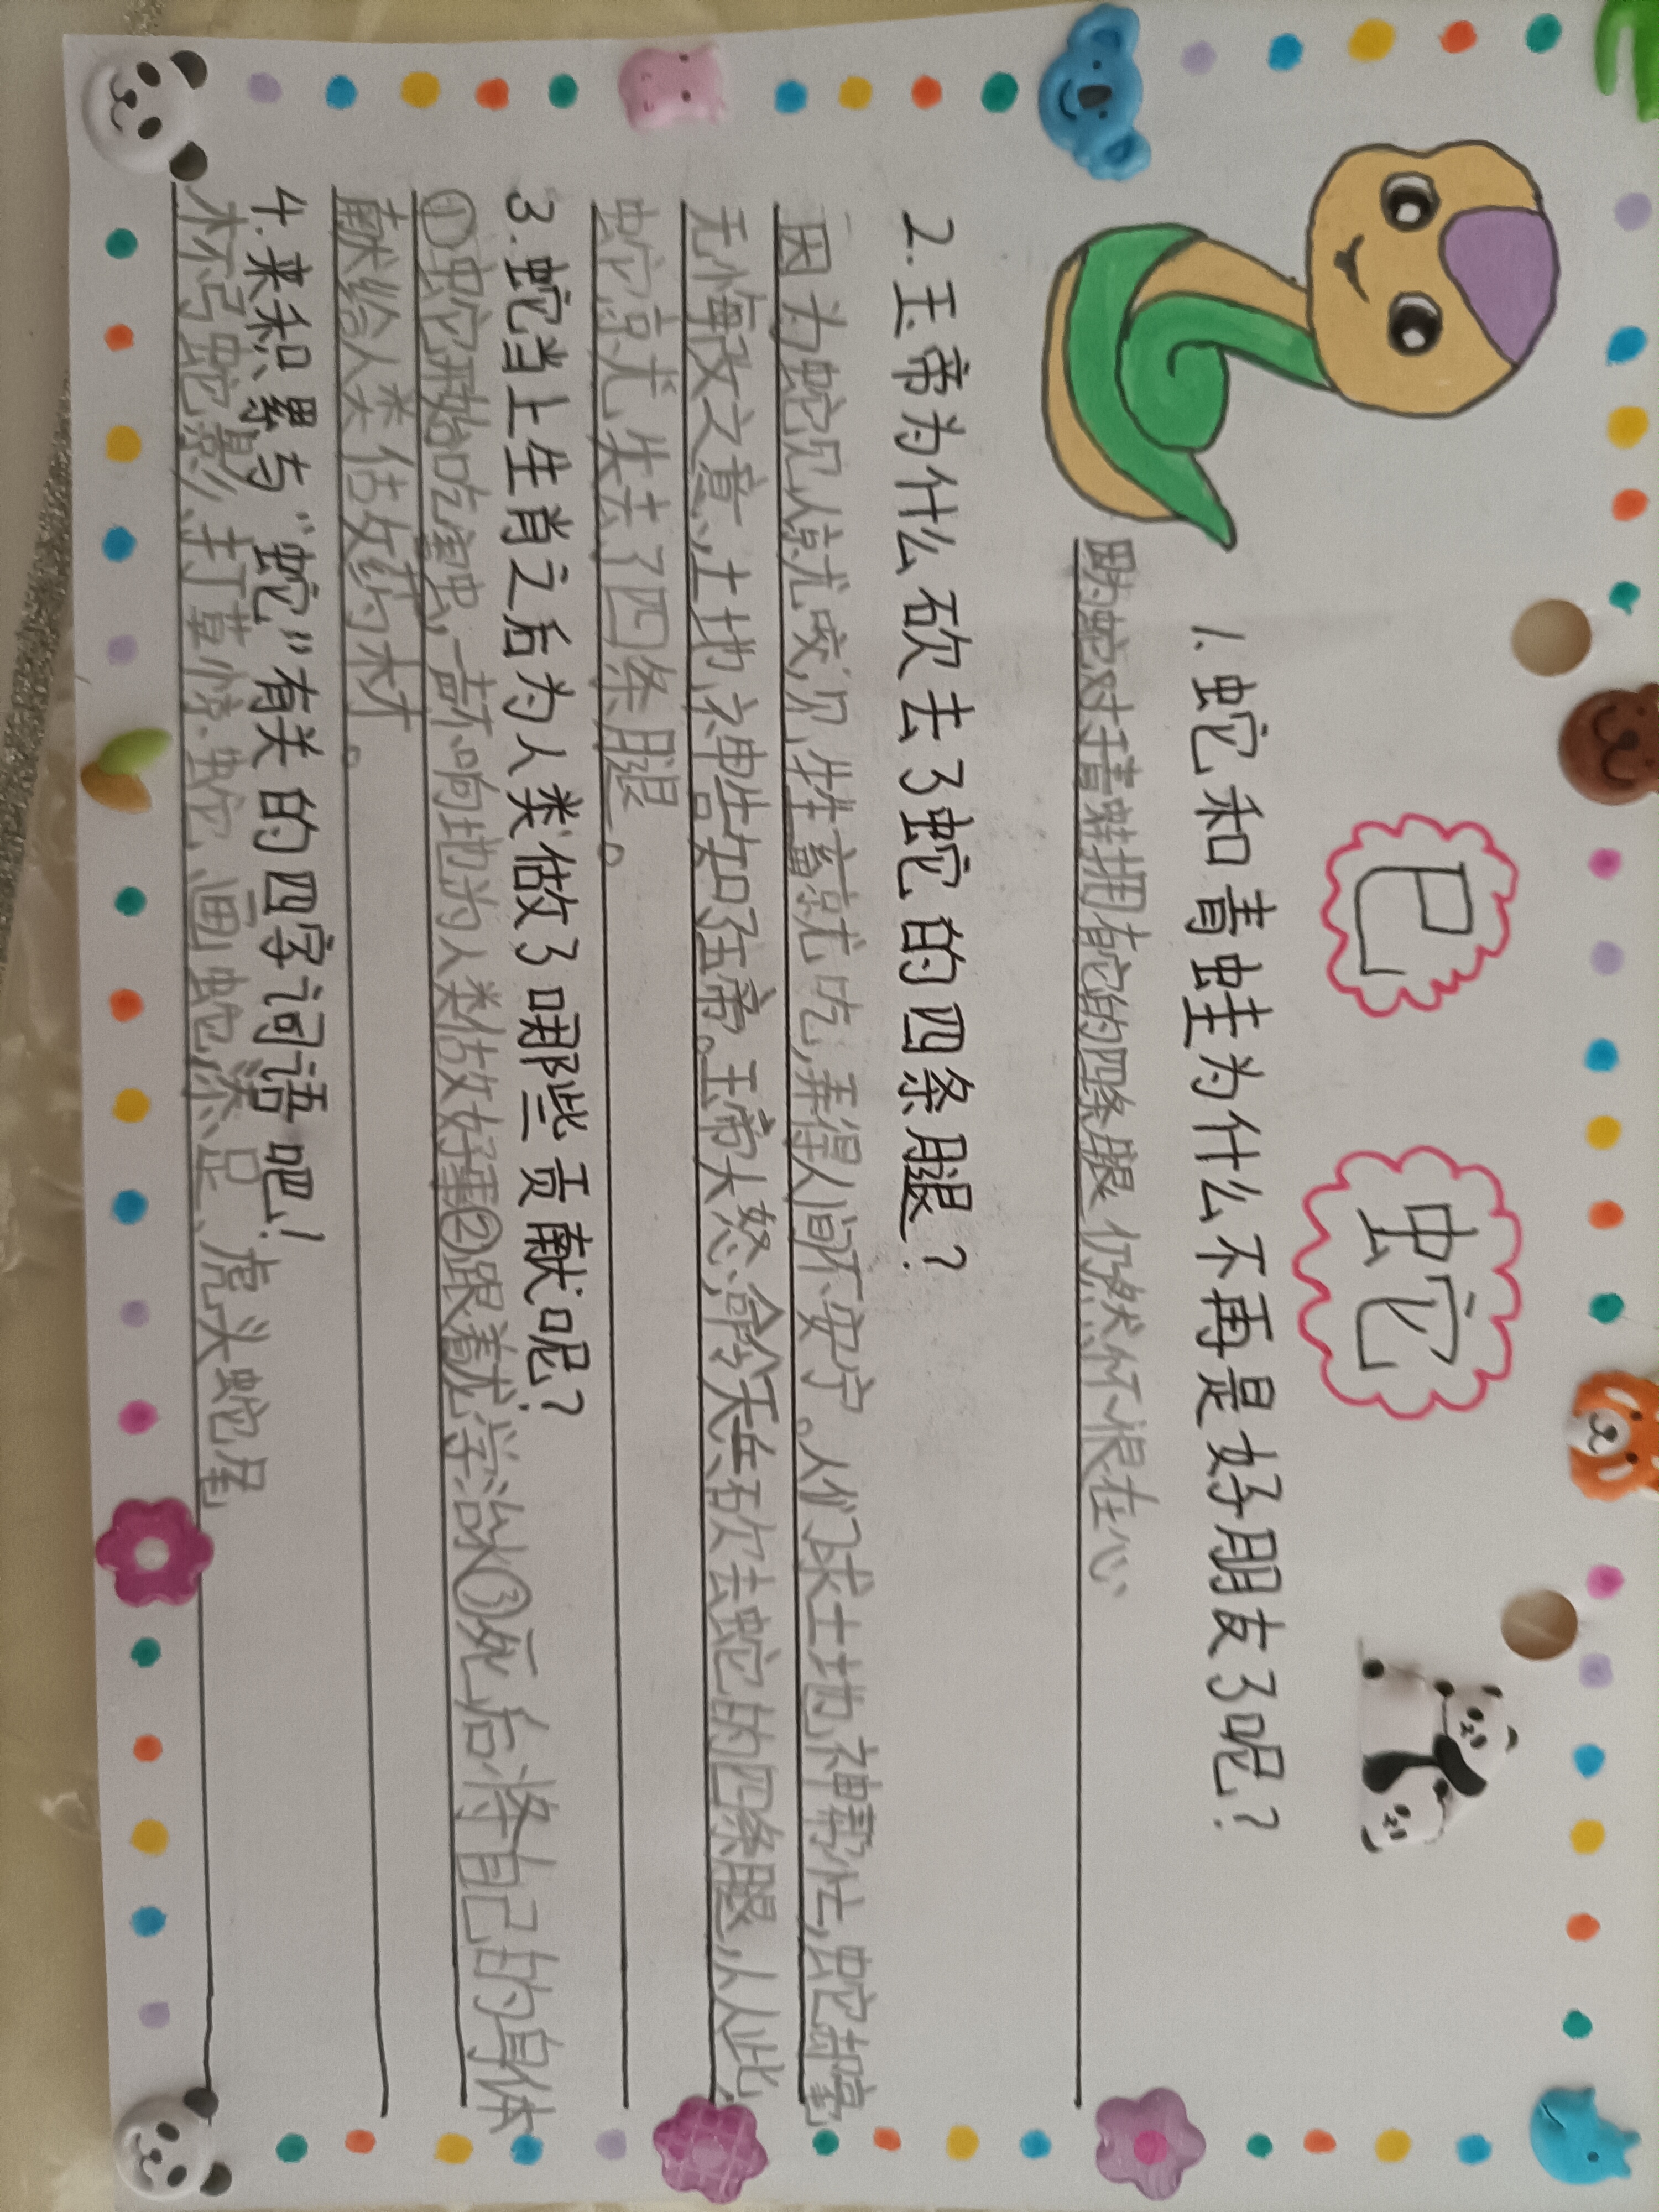 巳 蛇
1.蛇和青蛙为什么不再是好朋友了呢?
因为蛇对于青蛙拥有它的四条腿仍然怀恨在心
2.玉帝为什么砍去了蛇的四条腿?
因为蛇见人就咬,见牲畜就吃,弄得人间不安宁。人们求土地神帮忙,蛇却毫
无悔改之意,土地神告知玉帝。玉帝大怒,命令天兵砍去蛇的四条腿,从此
蛇就失去了四条腿。
3.蛇当上生肖之后为人类做了哪些贡献呢?
①蛇开始吃害虫,一声不响地为人类做好事②跟着龙学治水③死后将自己的身体
献给人类做药材。
4.来积累与“蛇”有关的四字词语吧!
杯弓蛇影、打草惊蛇、画蛇添足、虎头蛇尾